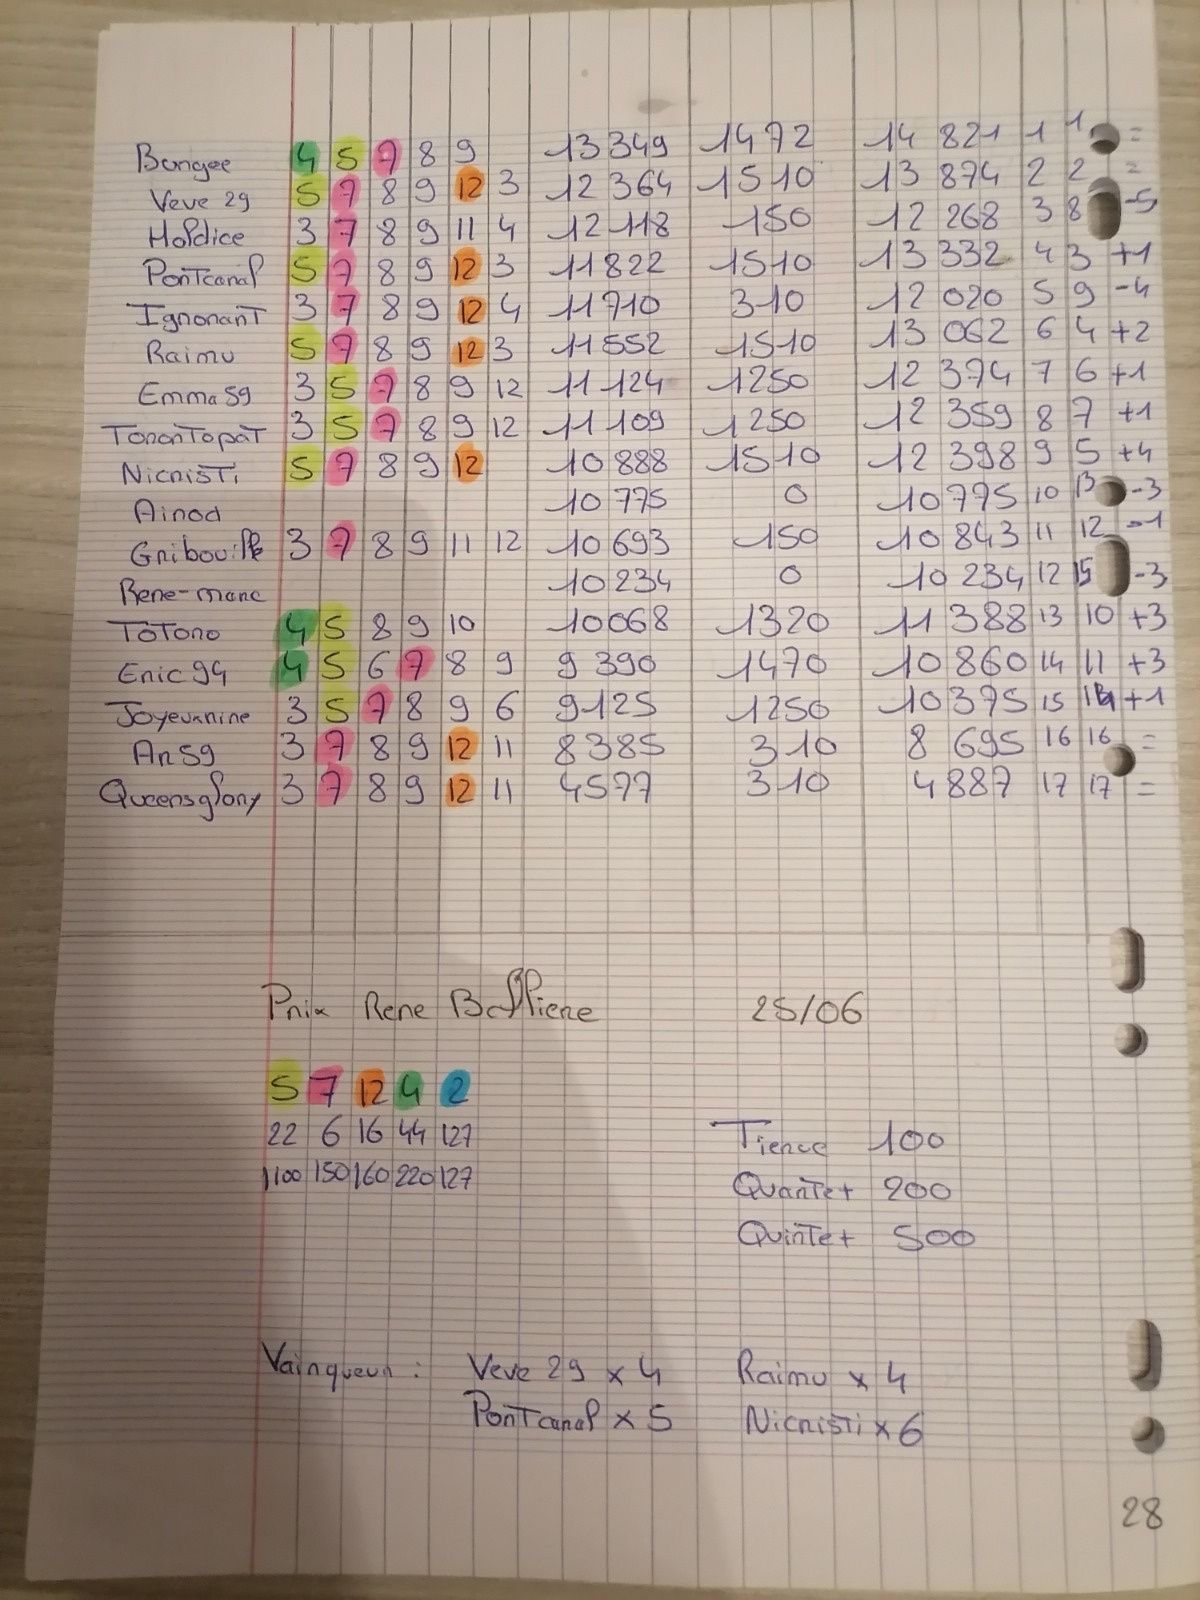 Bangee 4 5 7 8 9 13 349 1472 14 821 1 1 =
Veve 29 5 7 8 9 12 3 12 364 1510 13 874 2 2 =
Holdice 3 7 8 9 11 4 12 118 150 12 268 3 8 -5
Pontcanal 5 7 8 9 12 3 11822 1510 13 332 4 3 +1
Ignorant 3 7 8 9 12 4 11710 310 12 020 5 9 -4
Raimu 5 7 8 9 12 3 11 552 1510 13 062 6 4 +2
Emma 59 3 5 7 8 9 12 11 124 1250 12 374 7 6 +1
Torantopat 3 5 7 8 9 12 11 109 1250 12 359 8 7 +1
Nicristi 5 7 8 9 12 10 888 1510 12 398 9 5 +4
Ainod 10 775 0 10 775 10 13 -3
Gribouille 3 7 8 9 11 12 10 693 150 10 843 11 12 -1
Rene-marc 10 234 0 10 234 12 15 -3
Totoro 4 5 8 9 10 10068 1320 11 388 13 10 +3
Eric 94 4 5 6 7 8 9 9 390 1470 10 860 14 11 +3
Joyeurire 3 5 7 8 9 6 9125 1250 10 375 15 14 +1
An 59 3 7 8 9 12 11 8385 310 8 695 16 16 =
Queensglory 3 7 8 9 12 11 4577 310 4 887 17 17 =
Prix Rene Balliere 25/06
5 7 12 4 2
22 6 16 44 127
1100 150 160 220 127
Tierce 100
Quarte+ 200
Quinte+ 500
Vainqueur : Veve 29 x 4 Raimu x 4
Pontcanal x 5 Nicristi x 6
28